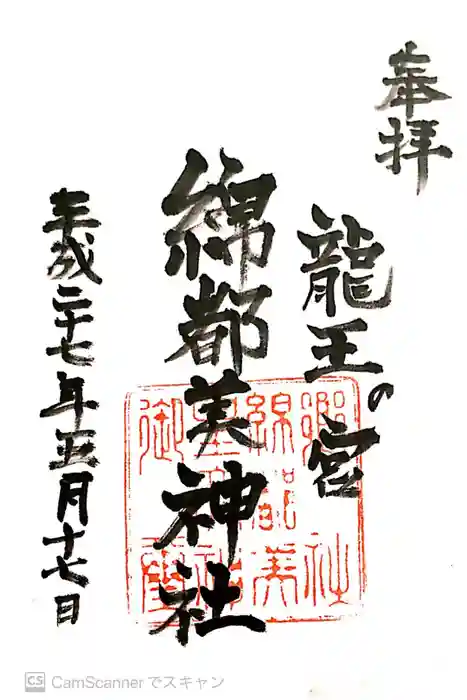 奉拝
龍王の宮
綿都美神社
平成二十七年五月十七日
CS CamScanner でスキャン